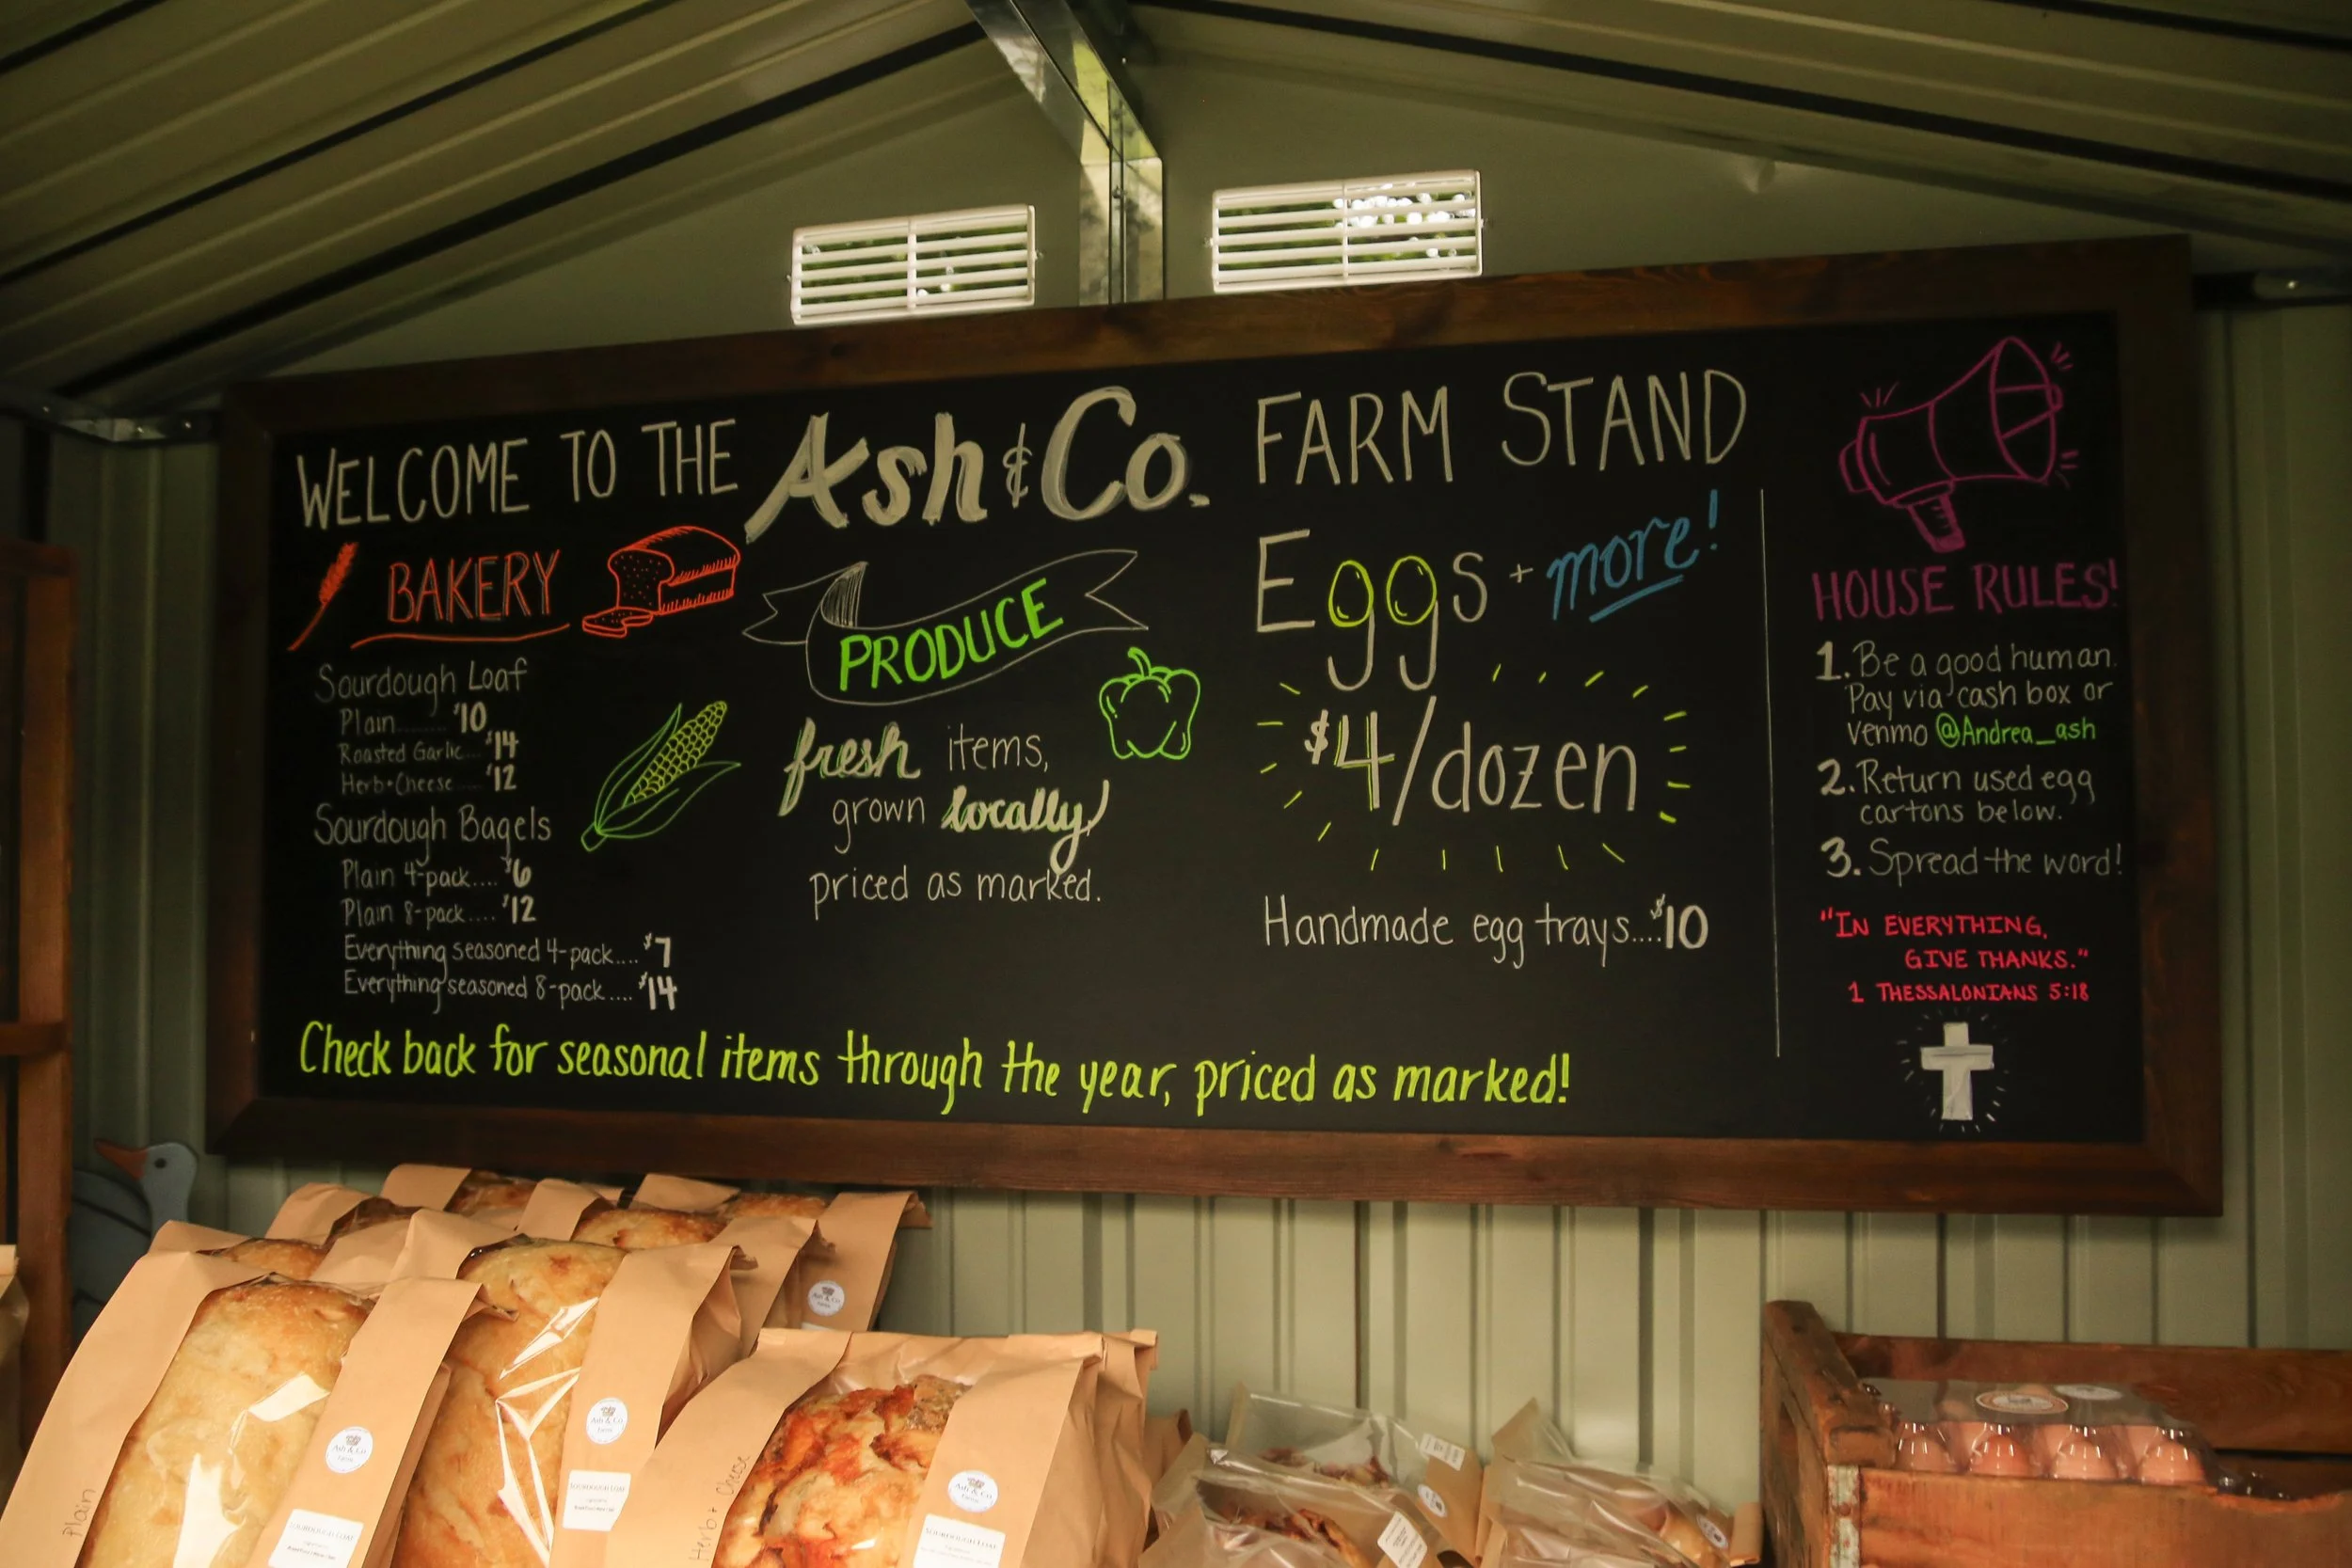 WELCOME TO THE Ash & Co. FARM STAND
BAKERY
Sourdough Loaf
Plain........ $10
Roasted Garlic... $14
Herb+Cheese..... $12
Sourdough Bagels
Plain 4-pack.... $6
Plain 8-pack.... $12
Everything seasoned 4-pack.... $7
Everything seasoned 8-pack.... $14
PRODUCE
fresh items,
grown locally,
priced as marked.
Eggs + more!
$4/dozen
Handmade egg trays....$10
Check back for seasonal items through the year, priced as marked!
HOUSE RULES!
1. Be a good human.
Pay via cash box or
venmo @Andrea_ash
2. Return used egg
cartons below.
3. Spread the word!
"IN EVERYTHING,
GIVE THANKS."
1 THESSALONIANS 5:18
Plain
Ash & Co
SOURDOUGH LOAF
Ash & Co
SOURDOUGH LOAF
Herb + Cheese
Ash & Co
SOURDOUGH LOAF